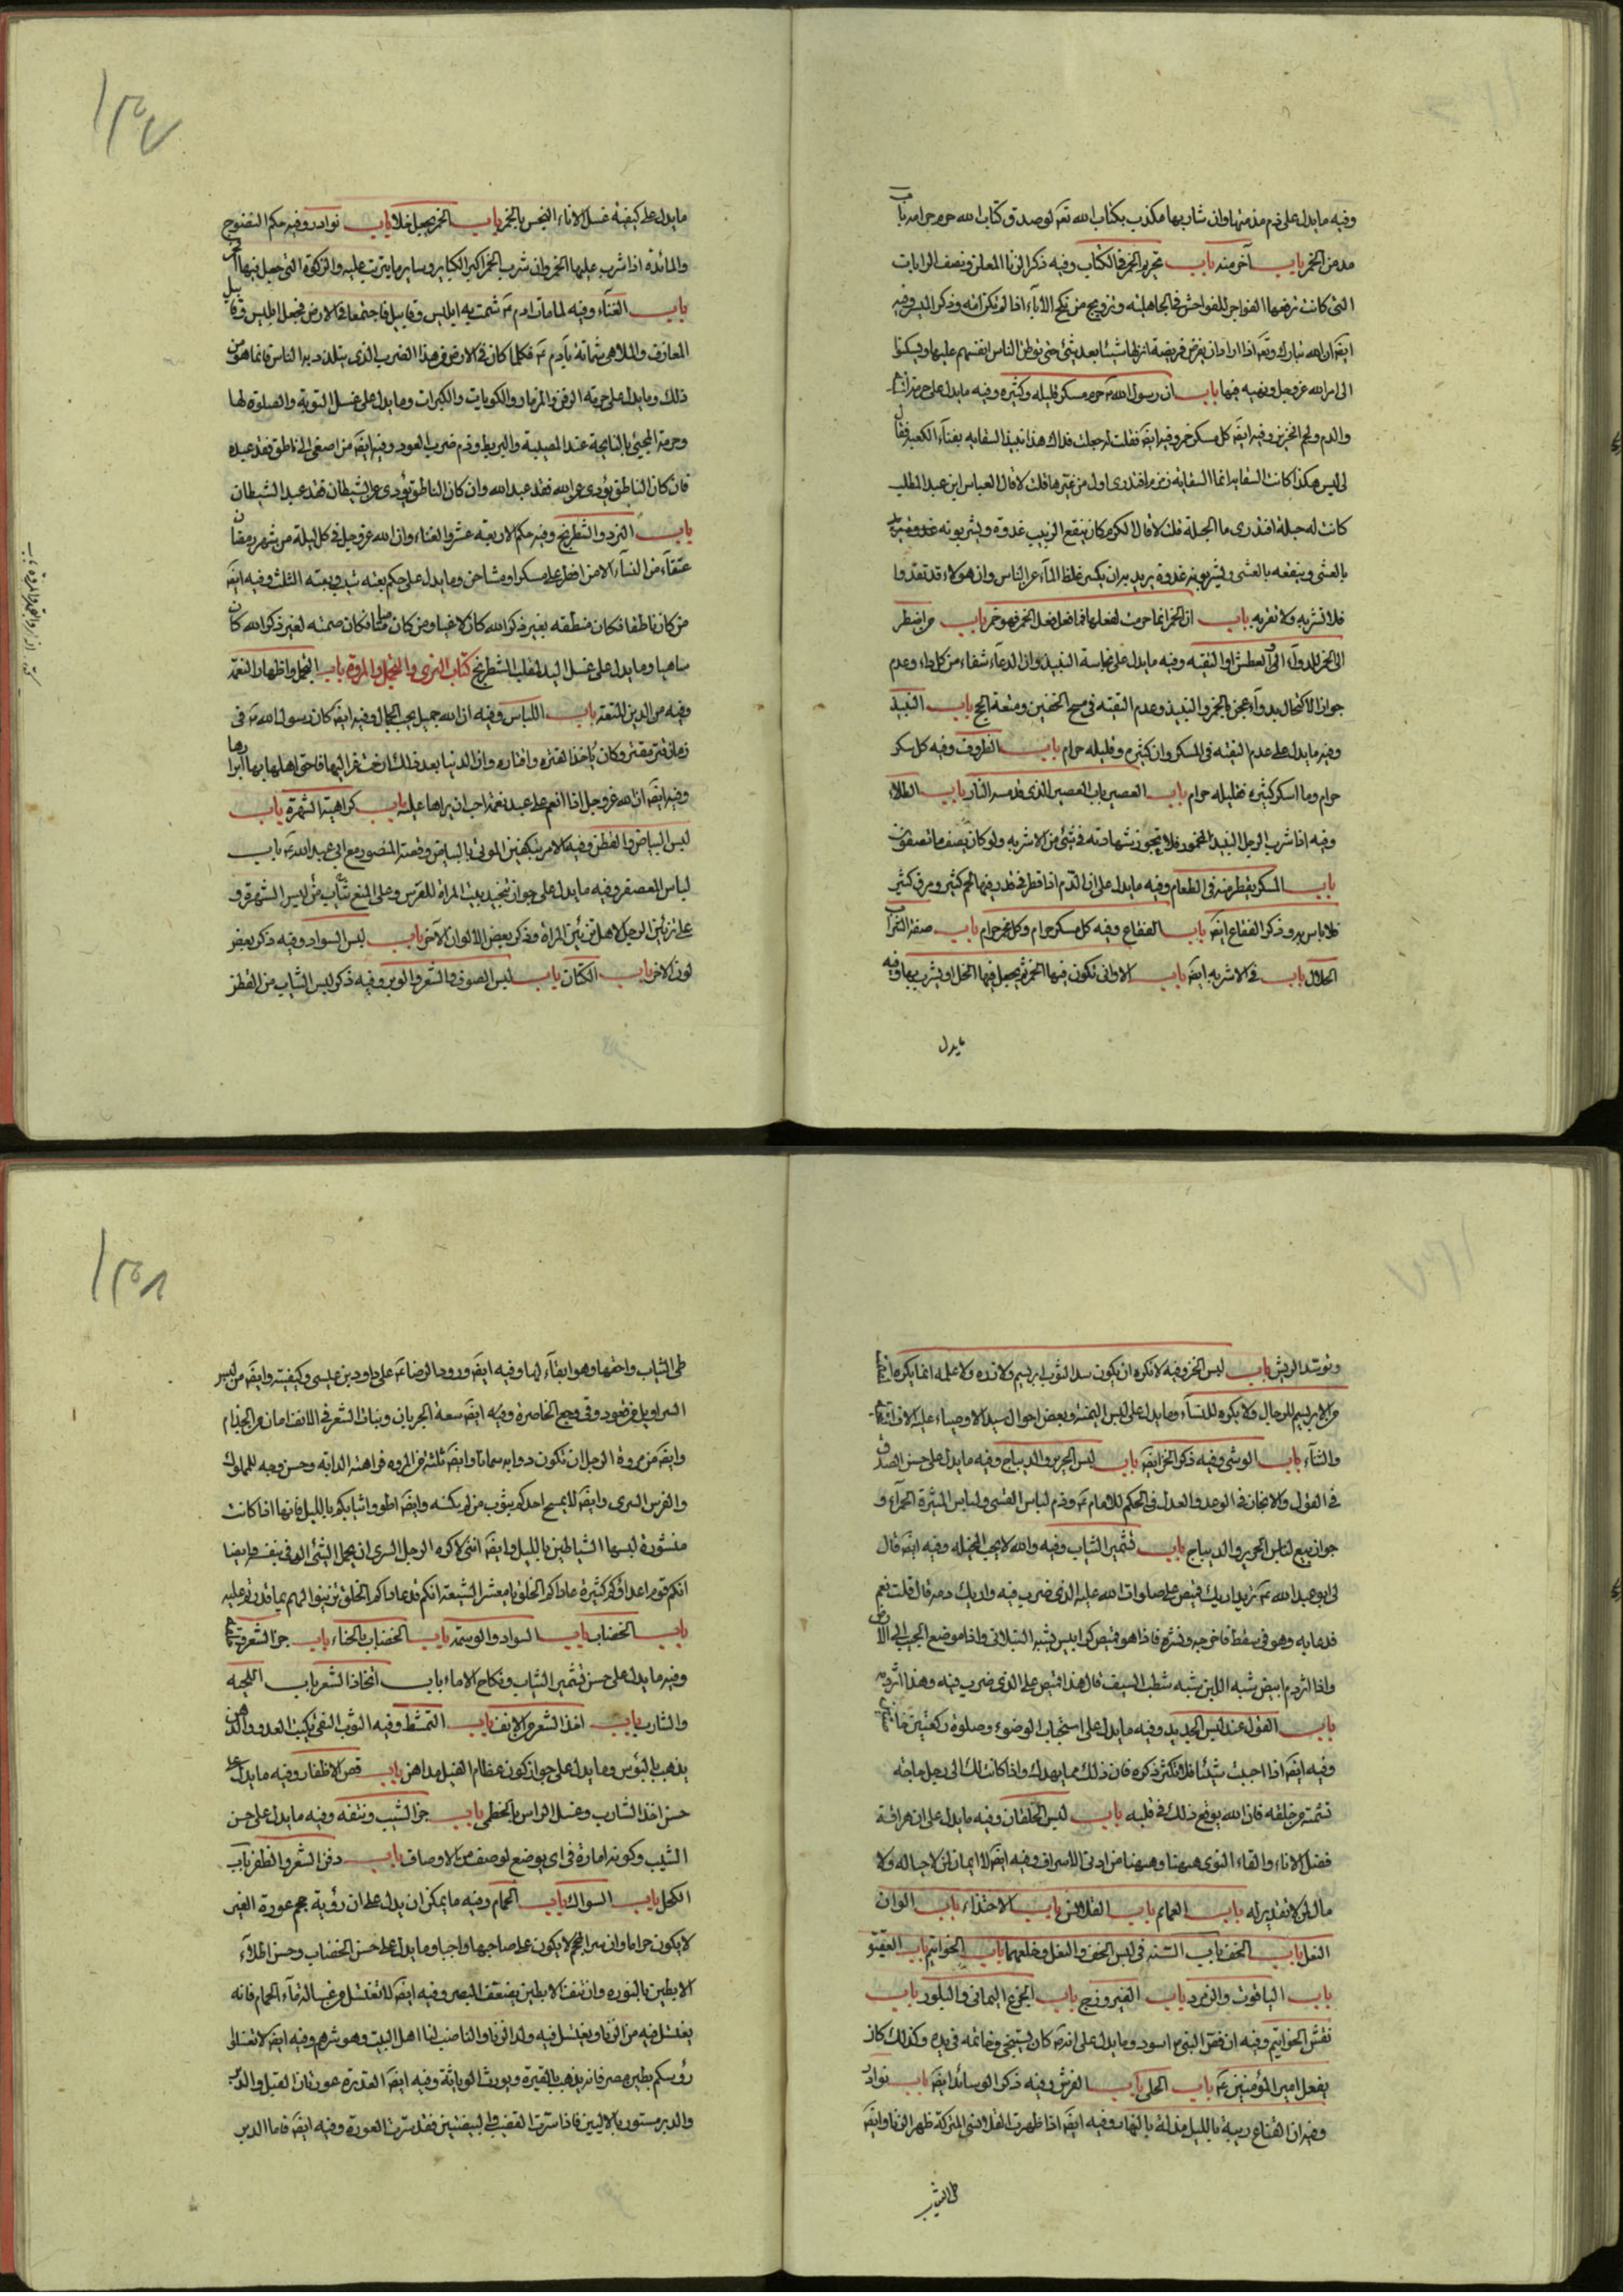 وفيه ما يدل على ذم مدمنها وان شاربها مكذب بكتاب الله تعه لو صدق كتاب الله حرم حرامه باب
مدمن الخمر باب آخر منه باب تحريم الخمر فى الكتاب وفيه ذكر الزنا المعلن ونصب الرايات
التى كانت ترفعها الفواجر للفواحش فى الجاهلية وتزويج من نكح الآباء اذا لم تكن امه وذكر الميسر وفيه
ايضه ان الله تبارك وتعه اذا اراد ان يفرض فريضة انزلها شيئا بعد شئ حتى يوطن الناس انفسهم عليها ويسكنوا
الى امر الله عز وجل ونهيه فيها باب ان رسول الله ص حرم مسكر قليله وكثيره وفيه ما يدل على حرمة
والدم ولحم الخنزير وفيه ايضه كل مسكر خمر وفيه ايضه فقلت له جعلت فداك هذا نبيذ السقاية بفناء الكعبة فقال
لى ليس هكذا كانت السقاية انما السقاية زمزم افتدرى اول من غيرها قلت لا قال العباس ابن عبد المطلب
كانت له حبلة افتدرى ما الحبلة قلت لا قال الكرم كان ينقع الزبيب غدوة ويشربونه
بالعشى وينقعه بالعشى ويشربونه غدوة يريد به ان يكسر غلظ الماء عن الناس وان هؤلاء قد تعدوا
فلا تشربه ولا تقربه باب ان الخمر انما حرمت لفعلها فما فعل فعل الخمر فهو خمر باب من اضطر
الى الخمر للدواء او العطش او التقية وفيه ما يدل على نجاسة النبيذ وان الدعاء شفاء من كل داء وعدم
جواز الاكتحال بدواء عجن بالخمر والنبيذ وعدم التقية فى مسح الخفين ومتعة الحج باب النبيذ
وفيه ما يدل على عدم التقية فى المسكر وان كثيره وقليله حرام باب الظروف وفيه كل مسكر
حرام وما اسكر كثيره فقليله حرام باب العصير باب العصير الذى قد مسه النار باب الطلاء
وفيه اذا شرب الرجل النبيذ المخمور فلا تجوز شهادته فى شئ من الاشربه ولو كان يصف ما تصفون
باب المسكر يقطر منه فى الطعام وفيه ما يدل على ان الدم اذا قطر فى قدر فيها لحم كثير ومرق كثير
فلا باس به وذكر الفقاع ايضه باب الفقاع وفيه كل مسكر حرام وكل مخمر حرام باب صفة الشراب
الحلال باب فى الاشربه ايضه باب الاوانى تكون فيها الخمر ثم يجعل فيها الخل او يشرب بها وفيه
ما يدل
١٣٧
ما يدل على كيفية غسل الاناء النجس بالخمر باب الخمر يجعل خلا باب نوادر وفيه حكم النضوح
والمائدة اذا شرب عليها الخمر وان شرب الخمر اكبر الكباير وساير ما يترتب عليه والزكوة التى جعل فيها
باب الغناء وفيه لما مات ادم ع شمت به ابليس وقابيل فاجتمعا فى الارض فجعل ابليس وقابيل
المعازف والملاهى شماتة بآدم ع فكلما كان فى الارض من هذا الضرب الذى يتلذذ به الناس فانما هو من
ذلك وما يدل على حرمة الزفن والمزمار والكوبات والكبرات وما يدل على غسل التوبة والصلوة لها
وحرمة المجيئ بالنايحة عند المصيبة والبربط وذم ضرب العود وفيه ايضه من اصغى الى ناطق فقد عبده
فان كان الناطق يؤدى عن الله فقد عبد الله وان كان الناطق يؤدى عن الشيطان فقد عبد الشيطان
باب النرد والشطرنج وفيه حكم الاربعة عشر والغناء وان الله عز وجل فى كل ليلة من شهر رمضان
عتقاء من النار الا من افطر على مسكر او مشاحن وما يدل على حكم بعته شيب وبعته الثلث وفيه ايضه
من كان ناطقا فكان منطقه بغير ذكر الله كان لاغيا ومن كان صامتا فكان صمته لغير ذكر الله كان
ساهيا وما يدل على غسل اليد لمقلب الشطرنج كتاب الزى والتجمل والمروة باب التجمل واظهار النعمه
وفيه من الدين المتعة باب اللباس وفيه ان الله جميل يحب الجمال وفيه ايضه كان رسول الله ص فى
زمان قتر مقتر وكان ياخذ لقتره واقتاره وان الدنيا بعد ذلك ارخت عزاليها فاحق اهلها بها ابرارها
وفيه ايضه ان الله عز وجل اذا انعم على عبد نعمة احب ان يراها عليه باب كراهية الشهرة باب
لبس البياض والقطن وفيه الامر بتكفين الموتى بالبياض وقصة المنصور مع ابى عبد الله ع باب
لباس المعصفر وفيه ما يدل على جواز تنجيد بيت المراة للعرس وعلى المنع من لبس الشهرة و
على تزيين الرجل لاهل تزيين المراة وذكر بعض الالوان الآخر باب لبس السواد وفيه ذكر بعض
لون الآخر باب الكتان باب لبس الصوف والشعر والوبر وفيه ذكر لبس الثياب من القطن
وتوسد الريش باب لبس الخز وفيه لا نكره ان يكون سدا الثوب ابريسم ولا زره ولا علمه انما يكره
من الابريسم للرجال ولا يكره للنساء وما يدل على لبس اليمنة وبعض احوال سيد الاوصياء عليه الاف التحية
والثناء باب الوشى وفيه ذكر الخز ايضه باب لبس الحرير والديباج وفيه ما يدل على حسن الصدق
فى القول والانجاز فى الوعد والعدل فى الحكم للامام ع وذم لباس القسى ولباس الميثرة الحمراء و
جواز بيع لباس الحرير والديباج باب تشمير الثياب وفيه والله لا يحب المخيلة وفيه ايضه قال
لى ابو عبد الله ع تريد اريك قميص على صلوات الله عليه الذى ضرب فيه واريك دمه قال قلت نعم
فدعا به وهو فى سفط فاخرجه ونشره فاذا هو قميص كرابيس يشبه السنبلانى واذا موضع الجيب الى الارض
واذا اثر دم ابيض شبه اللبن شبه شطب السيف قال هذا قميص على الذى ضرب فيه وهذا اثر دمه
باب القول عند لبس الجديد وفيه ما يدل على استحباب الوضوء وصلوة ركعتين
وفيه ايضه اذا احببت شيئا فلا تكثر ذكره فان ذلك مما يهدك واذا كانت لك الى رجل حاجه
تشتمه من خلفه فان الله يوقع ذلك فى قلبه باب لبس الخلقان وفيه ما يدل على ان هراقة
فضل الاناء والقاء النوى ههنا وههنا من ادنى الاسراف وفيه ايضه لا ايمان لمن لا حياله ولا
مال لمن لا تقدير له باب العمايم باب القلانس باب الاحتذاء باب الوان
النعل باب الخف باب السنه فى لبس الخف والنعل وخلعهما باب الخواتيم باب العقيق
باب الياقوت والزمرد باب الفيروزج باب الجزع اليمانى والبلور باب
نقش الخواتيم وفيه ان فص النبى ص اسود وما يدل على انه ع كان يستنجى وخاتمه فى يده وكذلك كان
يفعل امير المؤمنين ع باب الحلى باب الفرش وفيه ذكر الوسائد ايضه باب نوادر
وفيه ان القناع ريبة بالليل مذلة بالنهار وفيه ايضه اذا ظهرت القلانس المتركة ظهر الزنا وايضه
طى الثياب
١٣٨
طى الثياب وراحتها وهو ابقاء لها وفيه ايضه ورود الرضا ع على داود بن عيسى وكيفيته وايضه من لبس
السراويل من قعود وقى وجع الخاصرة وفيه ايضه سعة الجربان ونبات الشعر فى الانف امان من الجذام
وايضه من مروة الرجل ان تكون دوابه سمانا وايضه ثلثة من المروه فراهة الدابه وحسن وجه المملوك
والفرس السرى وايضه لا يمسح احدكم بثوب من لم يكسه وايضه اطووا ثيابكم بالليل فانها اذا كانت
منشورة لبسها الشياطين بالليل وايضه اننى لاكره الرجل السرى ان يحمل الشئ الدنى بنفسه وايضا
انكم قوم اعداؤكم كثيرة عاداكم الخلق يا معشر الشيعة انكم قد عاداكم الخلق تزينوا لهم بما قدرتم عليه
باب الخضاب باب السواد والوسمة باب الخضاب بالحناء باب جز الشعر وحلقه
وفيه ما يدل على حسن تشمير الثياب ونكاح الاماء باب اتخاذ الشعر باب اللحية
والشارب باب اخذ الشعر من الانف باب التمشط وفيه الثوب النقى يكبت العدو والدهن
يذهب بالبؤس وما يدل على جواز كون عظام الفيل مداهن باب قص الاظفار وفيه ما يدل على
حسن اخذ الشارب وغسل الراس بالخطمى باب جز الشيب ونتفه وفيه ما يدل على حسن
الشيب وكونه امارة فى اى يوضع لوصف من الاوصاف باب دفن الشعر والظفر باب
الكحل باب السواك باب الحمام وفيه ما يمكن ان يدل على ان رؤية حجم عورة الغير
لا يكون حراما وان ستر الحجم لا يكون على صاحبها واجبا وما يدل على حسن الخضاب وحسن اطلاء
الابطين بالنوره وان نتف الابطين يضعف البصر وفيه ايضه لا تغتسل من غسالة ماء الحمام فانه
يغتسل فيه من الزنا ويغتسل فيه ولد الزنا والناصب لنا اهل البيت وهو شرهم وفيه ايضه لا تغسلوا
رؤسكم بطين مصر فانه يذهب بالغيرة ويورث الدياثة وفيه ايضه العورة عورتان القبل والدبر
والدبر مستور بالاليين فاذا سترت القضيب والبيضتين فقد سترت العورة وفيه ايضه فاما الدبر